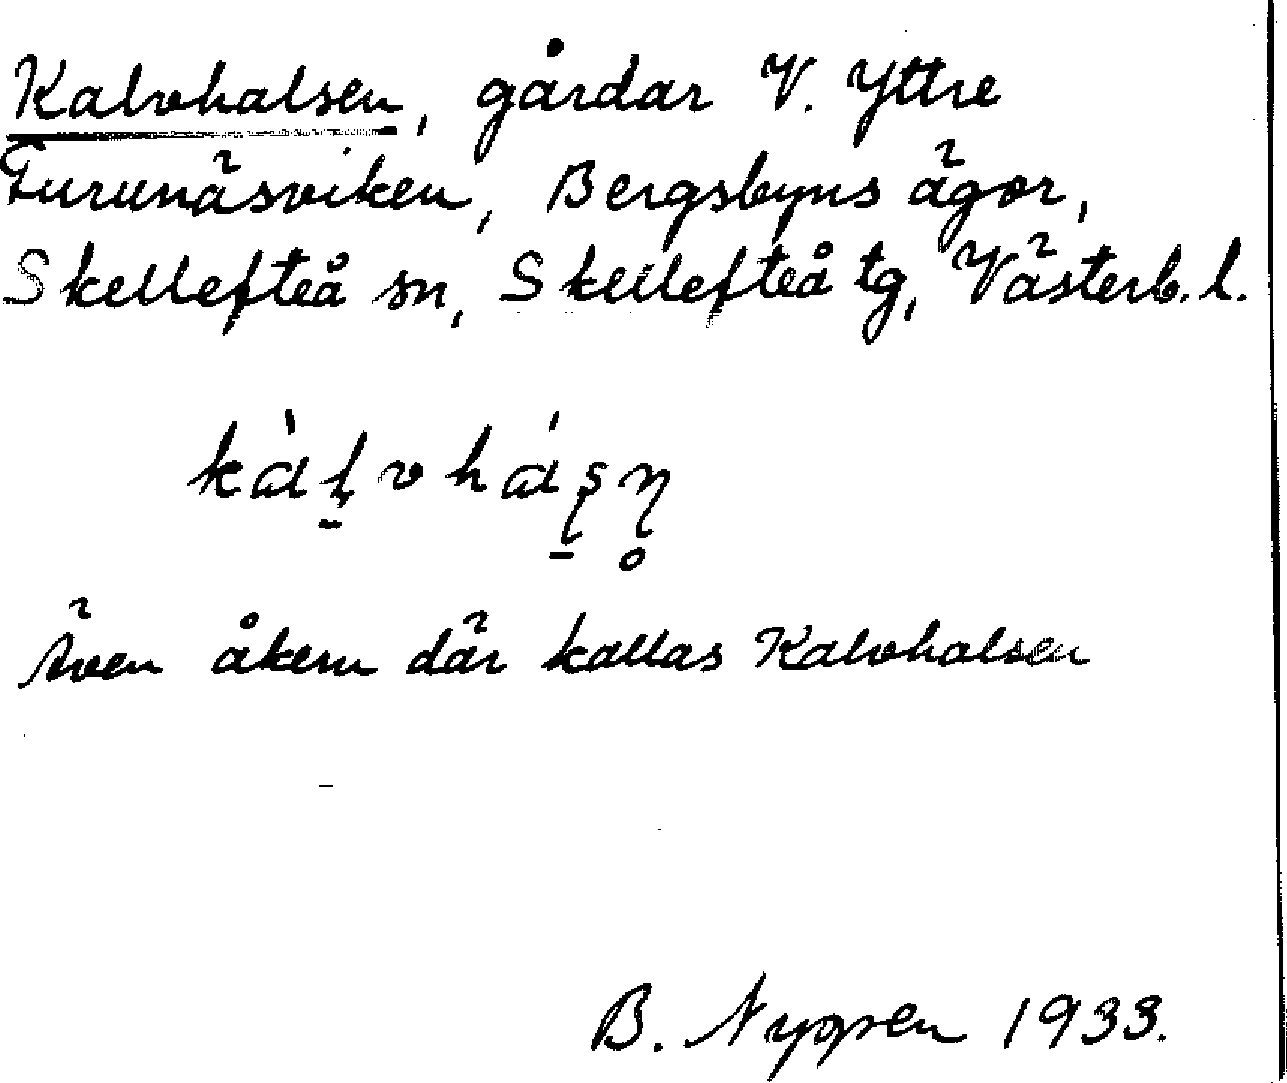 Kalvhalsen, gårdar V. Yttre
Furunäsviken, Bergsbyns ägor,
Skellefteå sn, Skellefteå tg, Västerb. l.
Även åkern där kallas Kalvhalsen
B. 1933.